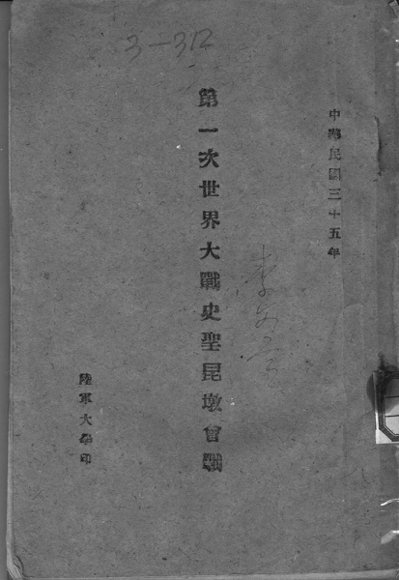 3-312
中華民國三十五年
第一次世界大戰史聖昆墩會戰
陸軍大學印